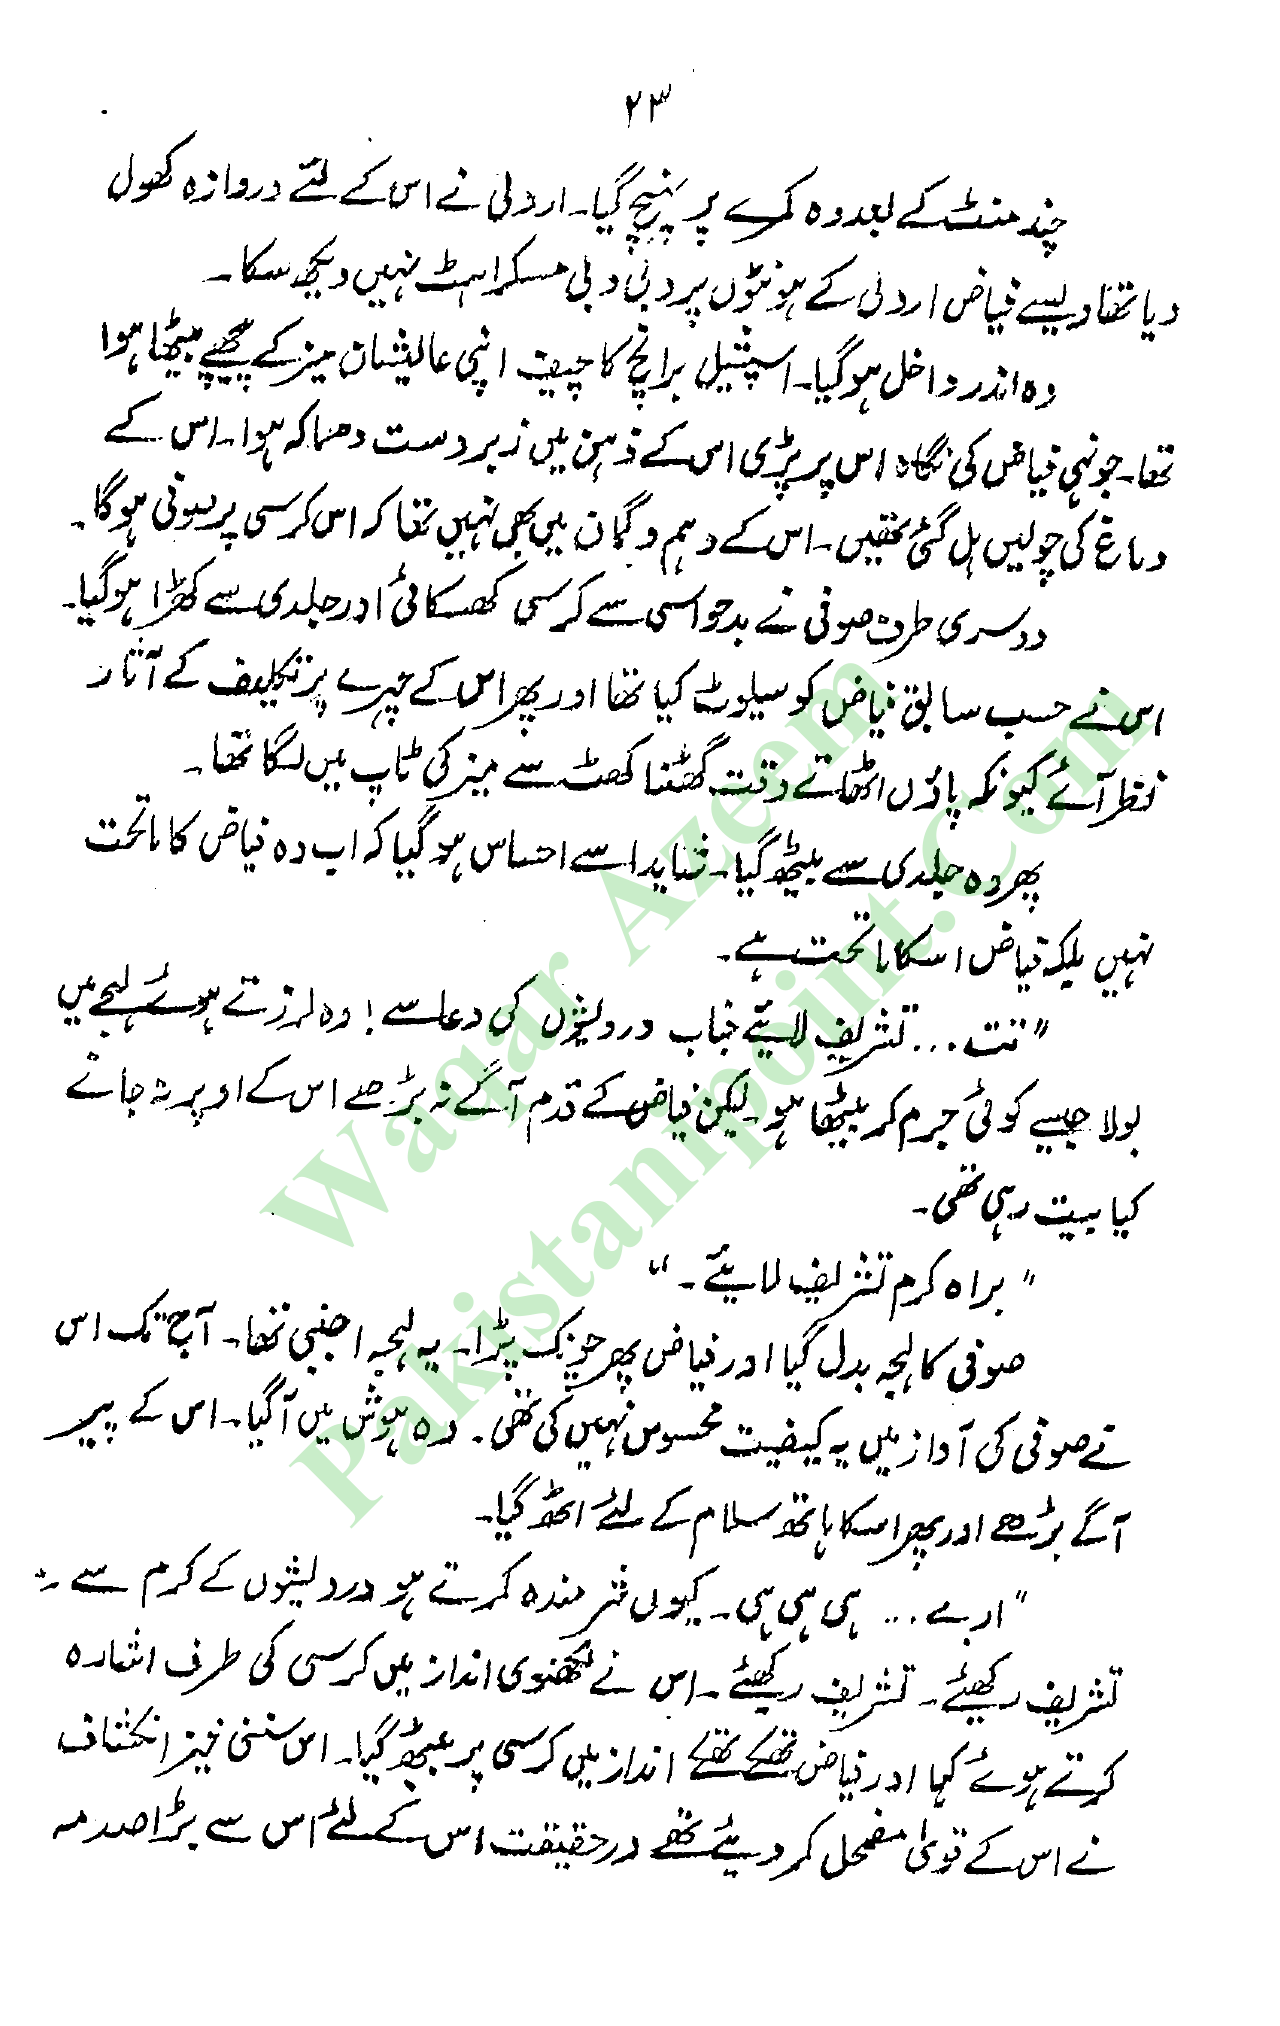 ۲۳
چند منٹ کے بعد وہ کمرے پر پہنچ گیا۔ اردلی نے اس کے لئے دروازہ کھول
دیا تھا ویسے فیاض اردلی کے ہونٹوں پر دبی دبی مسکراہٹ نہیں دیکھ سکا۔
وہ اندر داخل ہو گیا۔ اسپشیل برانچ کا چیف اپنی عالیشان میز کے پیچھے بیٹھا ہوا
تھا۔ جونہی فیاض کی نگاہ اس پر پڑی اس کے ذہن میں زبردست دھماکہ ہوا۔ اس کے
دماغ کی چولیں ہل گئی تھیں۔ اس کے وہم و گمان میں بھی نہیں تھا کہ اس کرسی پر صوفی ہوگا۔
دوسری طرف صوفی نے بدحواسی سے کرسی کھسکائی اور جلدی سے کھڑا ہو گیا۔
اس نے حسب سابق فیاض کو سیلوٹ کیا تھا اور پھر اس کے چہرے پر تکلیف کے آثار
نظر آئے کیونکہ پاؤں اٹھاتے وقت گھٹنا کھٹ سے میز کی ٹاپ میں لگا تھا۔
پھر وہ جلدی سے بیٹھ گیا۔ شاید اسے احساس ہو گیا کہ اب وہ فیاض کا ماتحت
نہیں بلکہ فیاض اسکا ماتحت ہے۔
"تت... تشریف لائیے جناب درویشوں کی دعا سے! وہ لرزتے ہوئے لہجے میں
بولا جیسے کوئی جرم کر بیٹھا ہو۔ لیکن فیاض کے قدم آگے نہ بڑھے اس کے اوپر نہ جانے
کیا بیت رہی تھی۔
"براہ کرم تشریف لائیے۔"
صوفی کا لہجہ بدل گیا اور فیاض پھر چونک پڑا۔ یہ لہجہ اجنبی تھا۔ آج تک اس
نے صوفی کی آواز میں یہ کیفیت محسوس نہیں کی تھی۔ وہ ہوش میں آگیا۔ اس کے پیر
آگے بڑھے اور پھر اسکا ہاتھ سلام کے لئے اٹھ گیا۔
"ارے... ہی ہی ہی۔ کیوں شرمندہ کرتے ہو درویشوں کے کرم سے۔
تشریف رکھئے۔ تشریف رکھئے۔ اس نے لکھنوی انداز میں کرسی کی طرف اشارہ
کرتے ہوئے کہا اور فیاض تھکے تھکے انداز میں کرسی پر بیٹھ گیا۔ اس سنسنی خیز انکشاف
نے اس کے قویٰ مضمحل کر دیئے تھے درحقیقت اس کے لئے اس سے بڑا صدمہ
Waqar Azeem
Pakistanipoint.Com